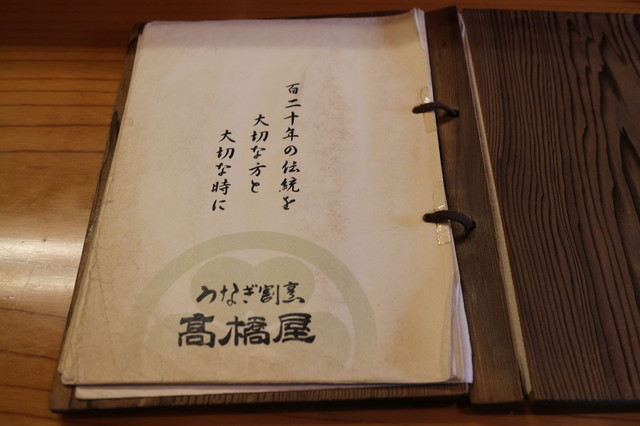 百二十年の伝統を
大切な方と
大切な時に
うなぎ割烹
髙橋屋